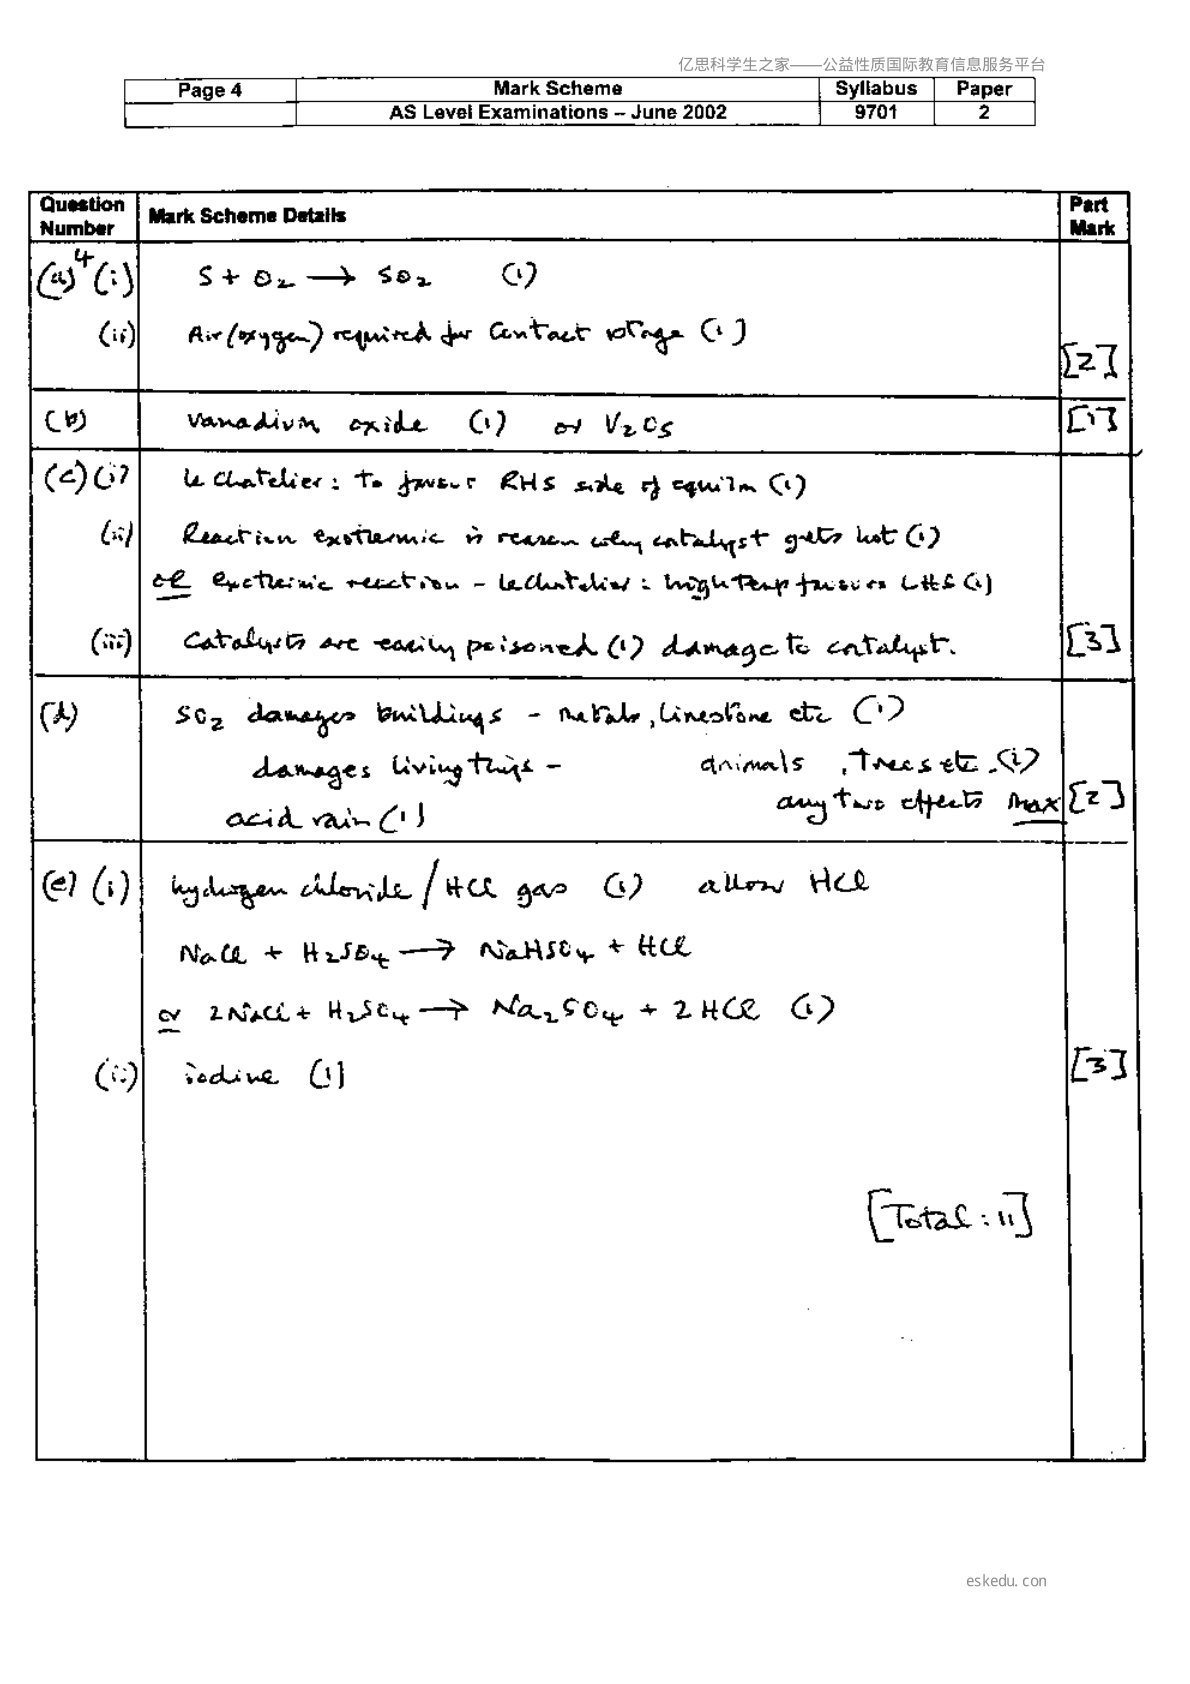 亿思科学生之家——公益性质国际教育信息服务平台
Page 4 Mark Scheme Syllabus Paper
AS Level Examinations – June 2002 9701 2
Question Number Mark Scheme Details Part Mark
4
(a) (i) S + O₂ → SO₂ (1)
(ii) Air (oxygen) required for Contact stage (1)
[2]
(b) vanadium oxide (1) or V₂O₅ [1]
(c) (i) Le Chatelier: to favour RHS side of equilm (1)
(ii) Reaction exothermic is reason why catalyst gets hot (1)
or exothermic reaction – Le Chatelier: high temp favours LHS (1)
(iii) Catalysts are easily poisoned (1) damage to catalyst. [3]
(d) SO₂ damages buildings – metals, limestone etc (1)
damages living things – animals, trees etc. (1)
any two effects max [2]
acid rain (1)
(e) (i) hydrogen chloride / HCl gas (1) allow HCl
NaCl + H₂SO₄ → NaHSO₄ + HCl
or 2NaCl + H₂SO₄ → Na₂SO₄ + 2HCl (1)
(ii) iodine (1) [3]
[Total: 11]
eskedu. con